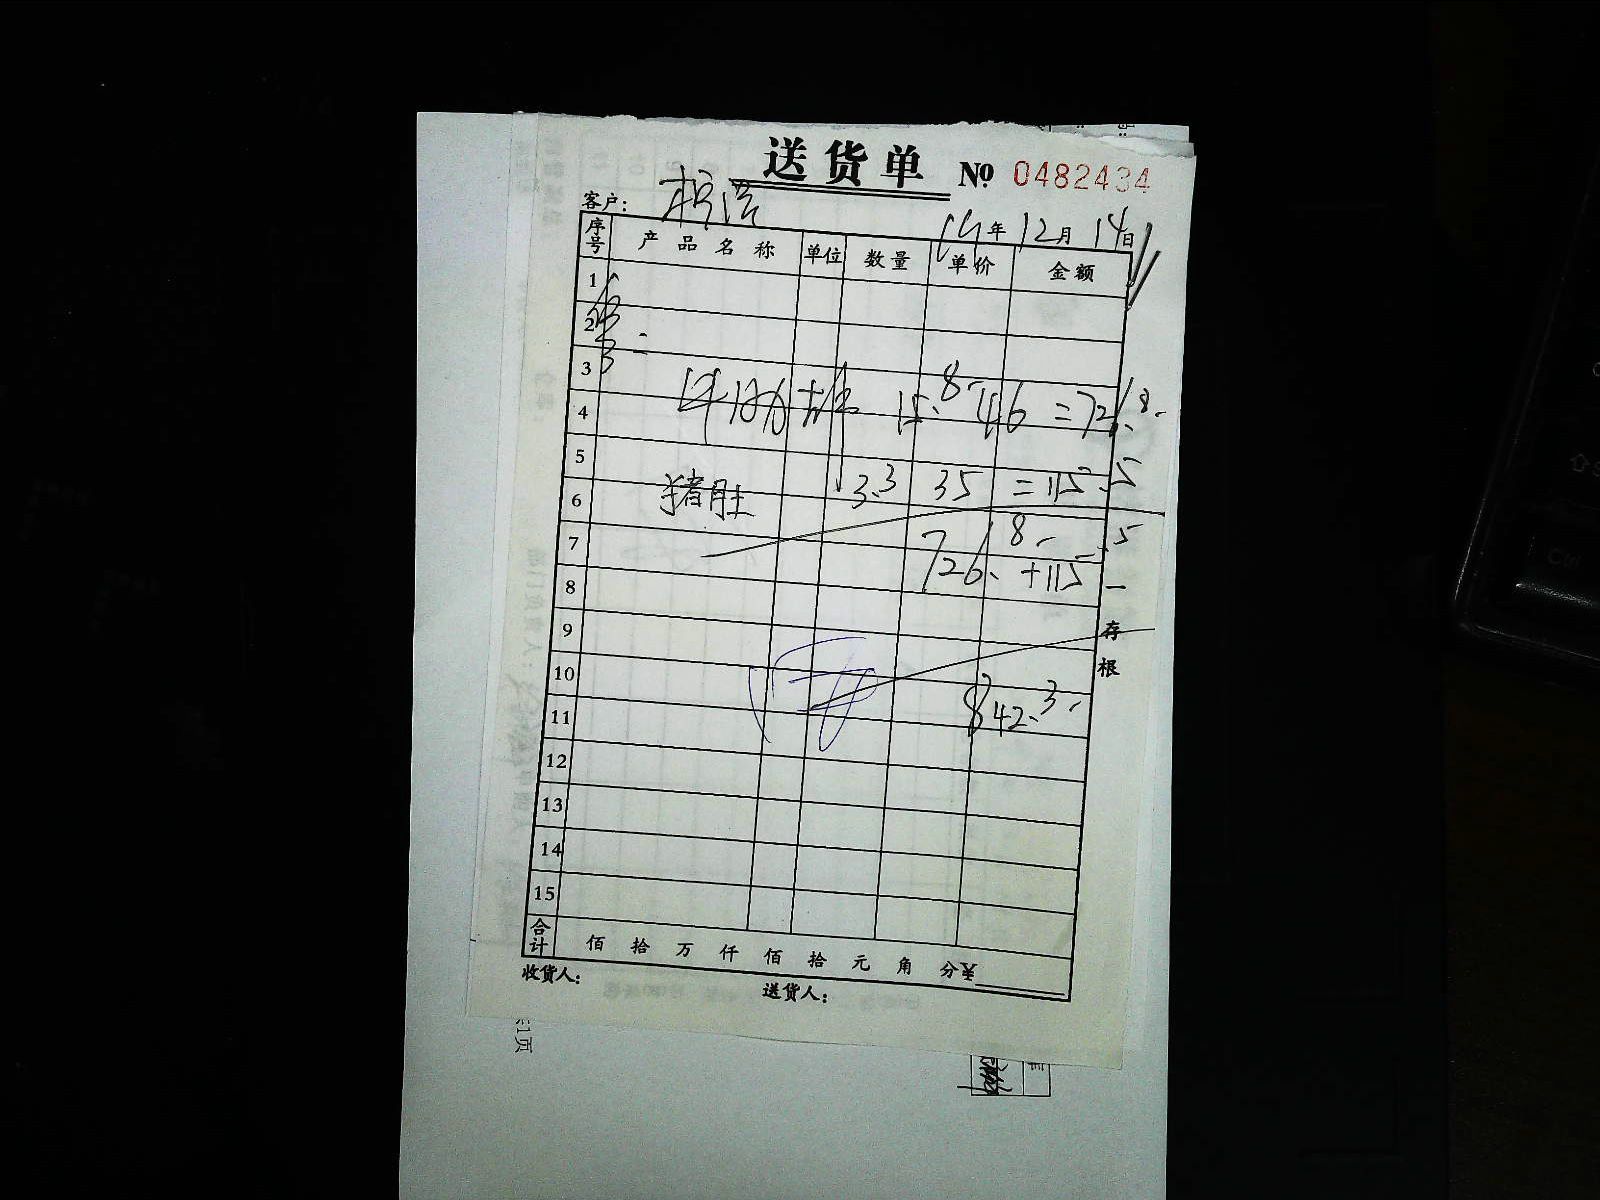 送货单 № 0482434
客户:
14年12月14日
序号 产品名称 单位 数量 单价 金额
1
2
3
4 15.8 46 =726.8
5
6 猪肚 3.3 35 =115.5
7
726.8 +115.5
8
9
10
842.3
11
12
13
14
15
合计 佰 拾 万 仟 佰 拾 元 角 分¥
收货人: 送货人:
一存根